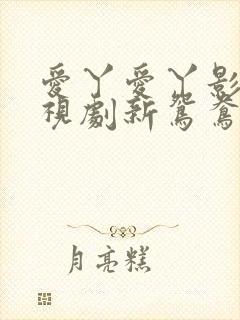 愛丫愛丫影
視劇新鴛鴦
月亮糕